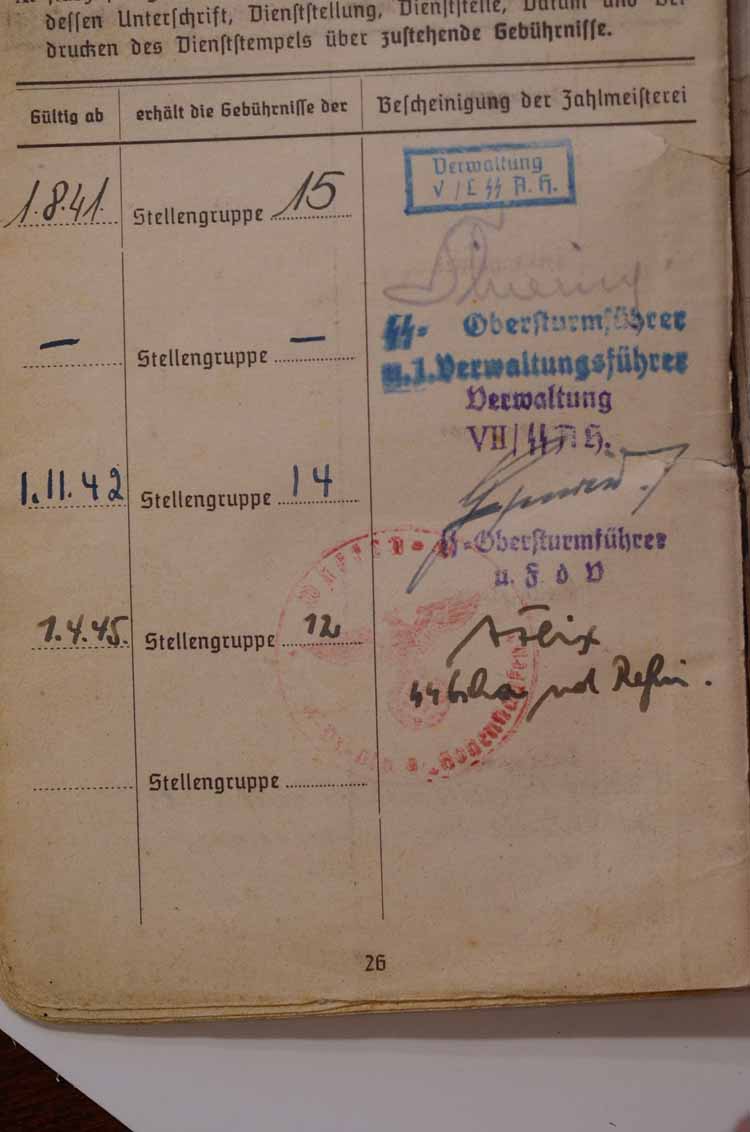 dessen Unterschrift, Dienststellung, Dienststelle, Datum und
drucken des Dienststempels über zustehende Gebührnisse.
Gültig ab erhält die Gebührnisse der Bescheinigung der Zahlmeisterei
Verwaltung
V / L ᛋᛋ A. H.
1.8.41. Stellengruppe 15
ᛋᛋ- Obersturmführer
u. 1. Verwaltungsführer
— Stellengruppe —
Verwaltung
VII / ᛋᛋ A. H.
1.11.42 Stellengruppe 14
ᛋᛋ-Obersturmführer
u. F. d. V
1.4.45. Stellengruppe 12
ᛋᛋ und
Stellengruppe
26